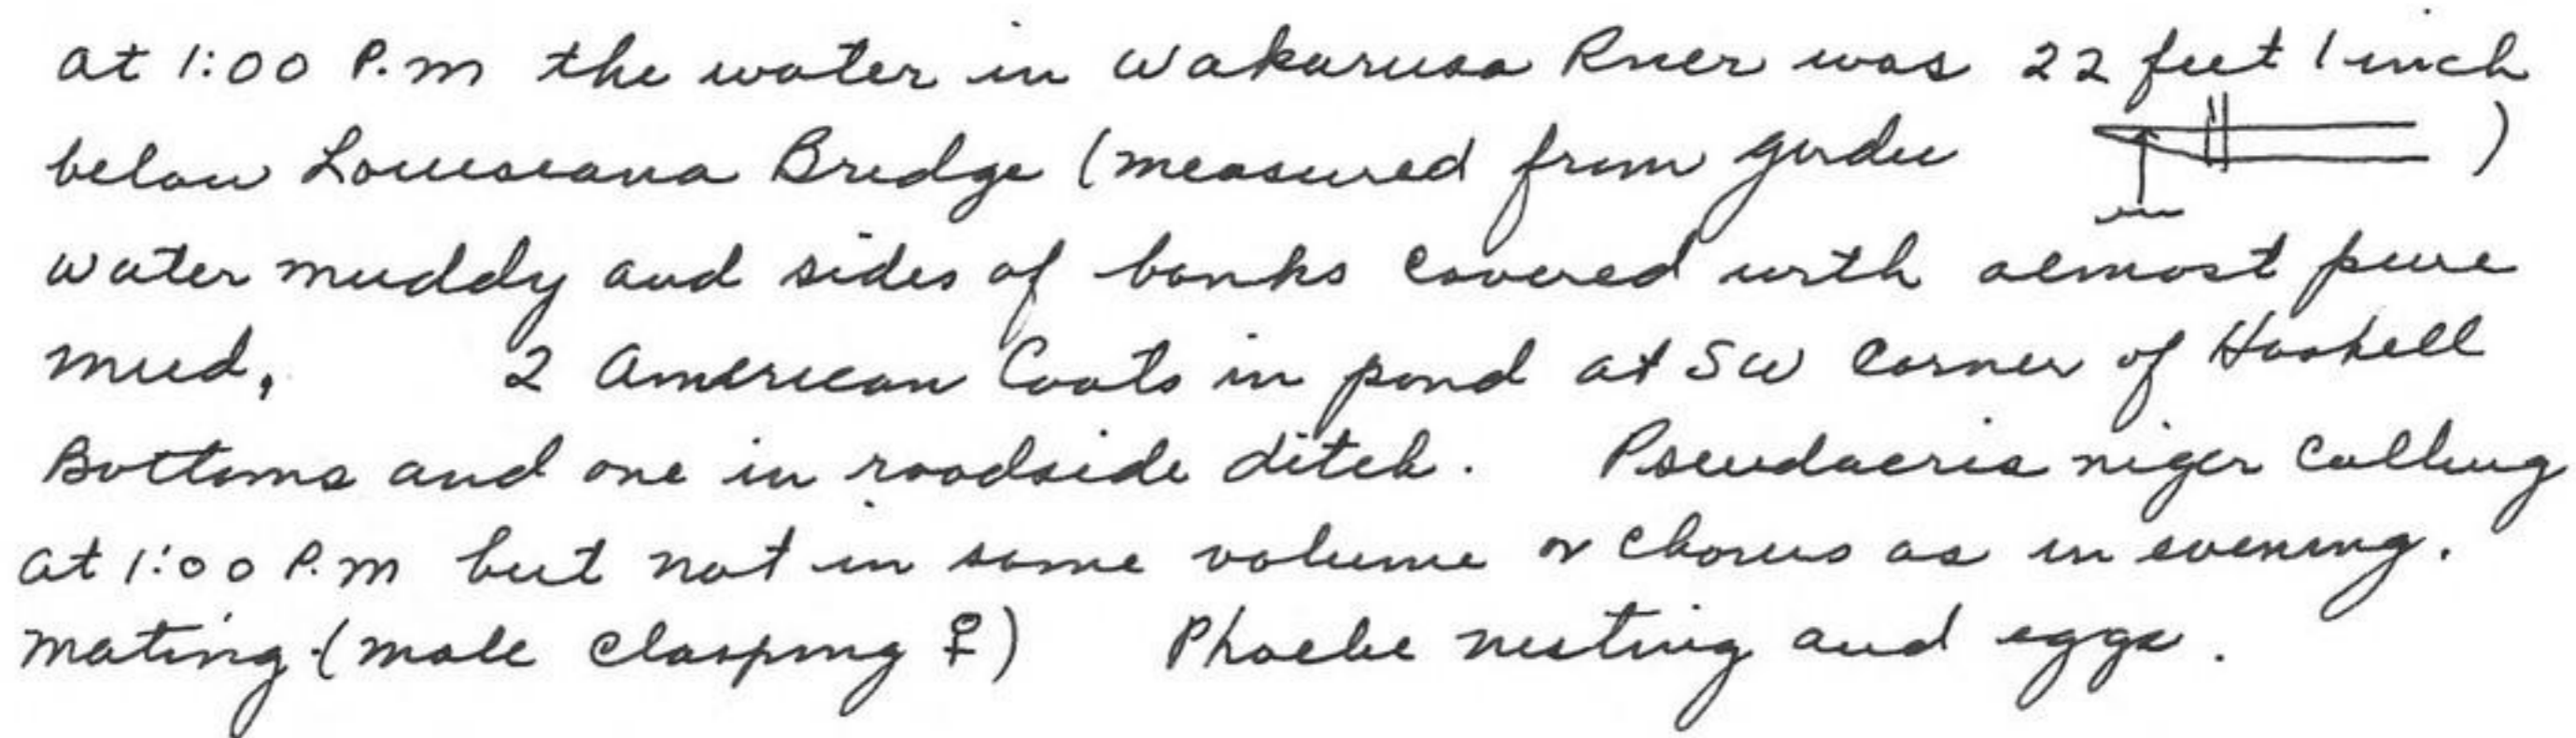 at 1:00 P.m the water in Wakarusa River was 22 feet 1 inch
below Louiseana Bridge (measured from girder )
water muddy and sides of banks covered with almost pure
mud, 2 American Coots in pond at SW Corner of Haskell
Bottoms and one in roadside ditch. Pseudacris niger Calling
at 1:00 P.m but not in same volume or chorus as in evening.
mating (male clasping ♀) Phoebe nesting and eggs.